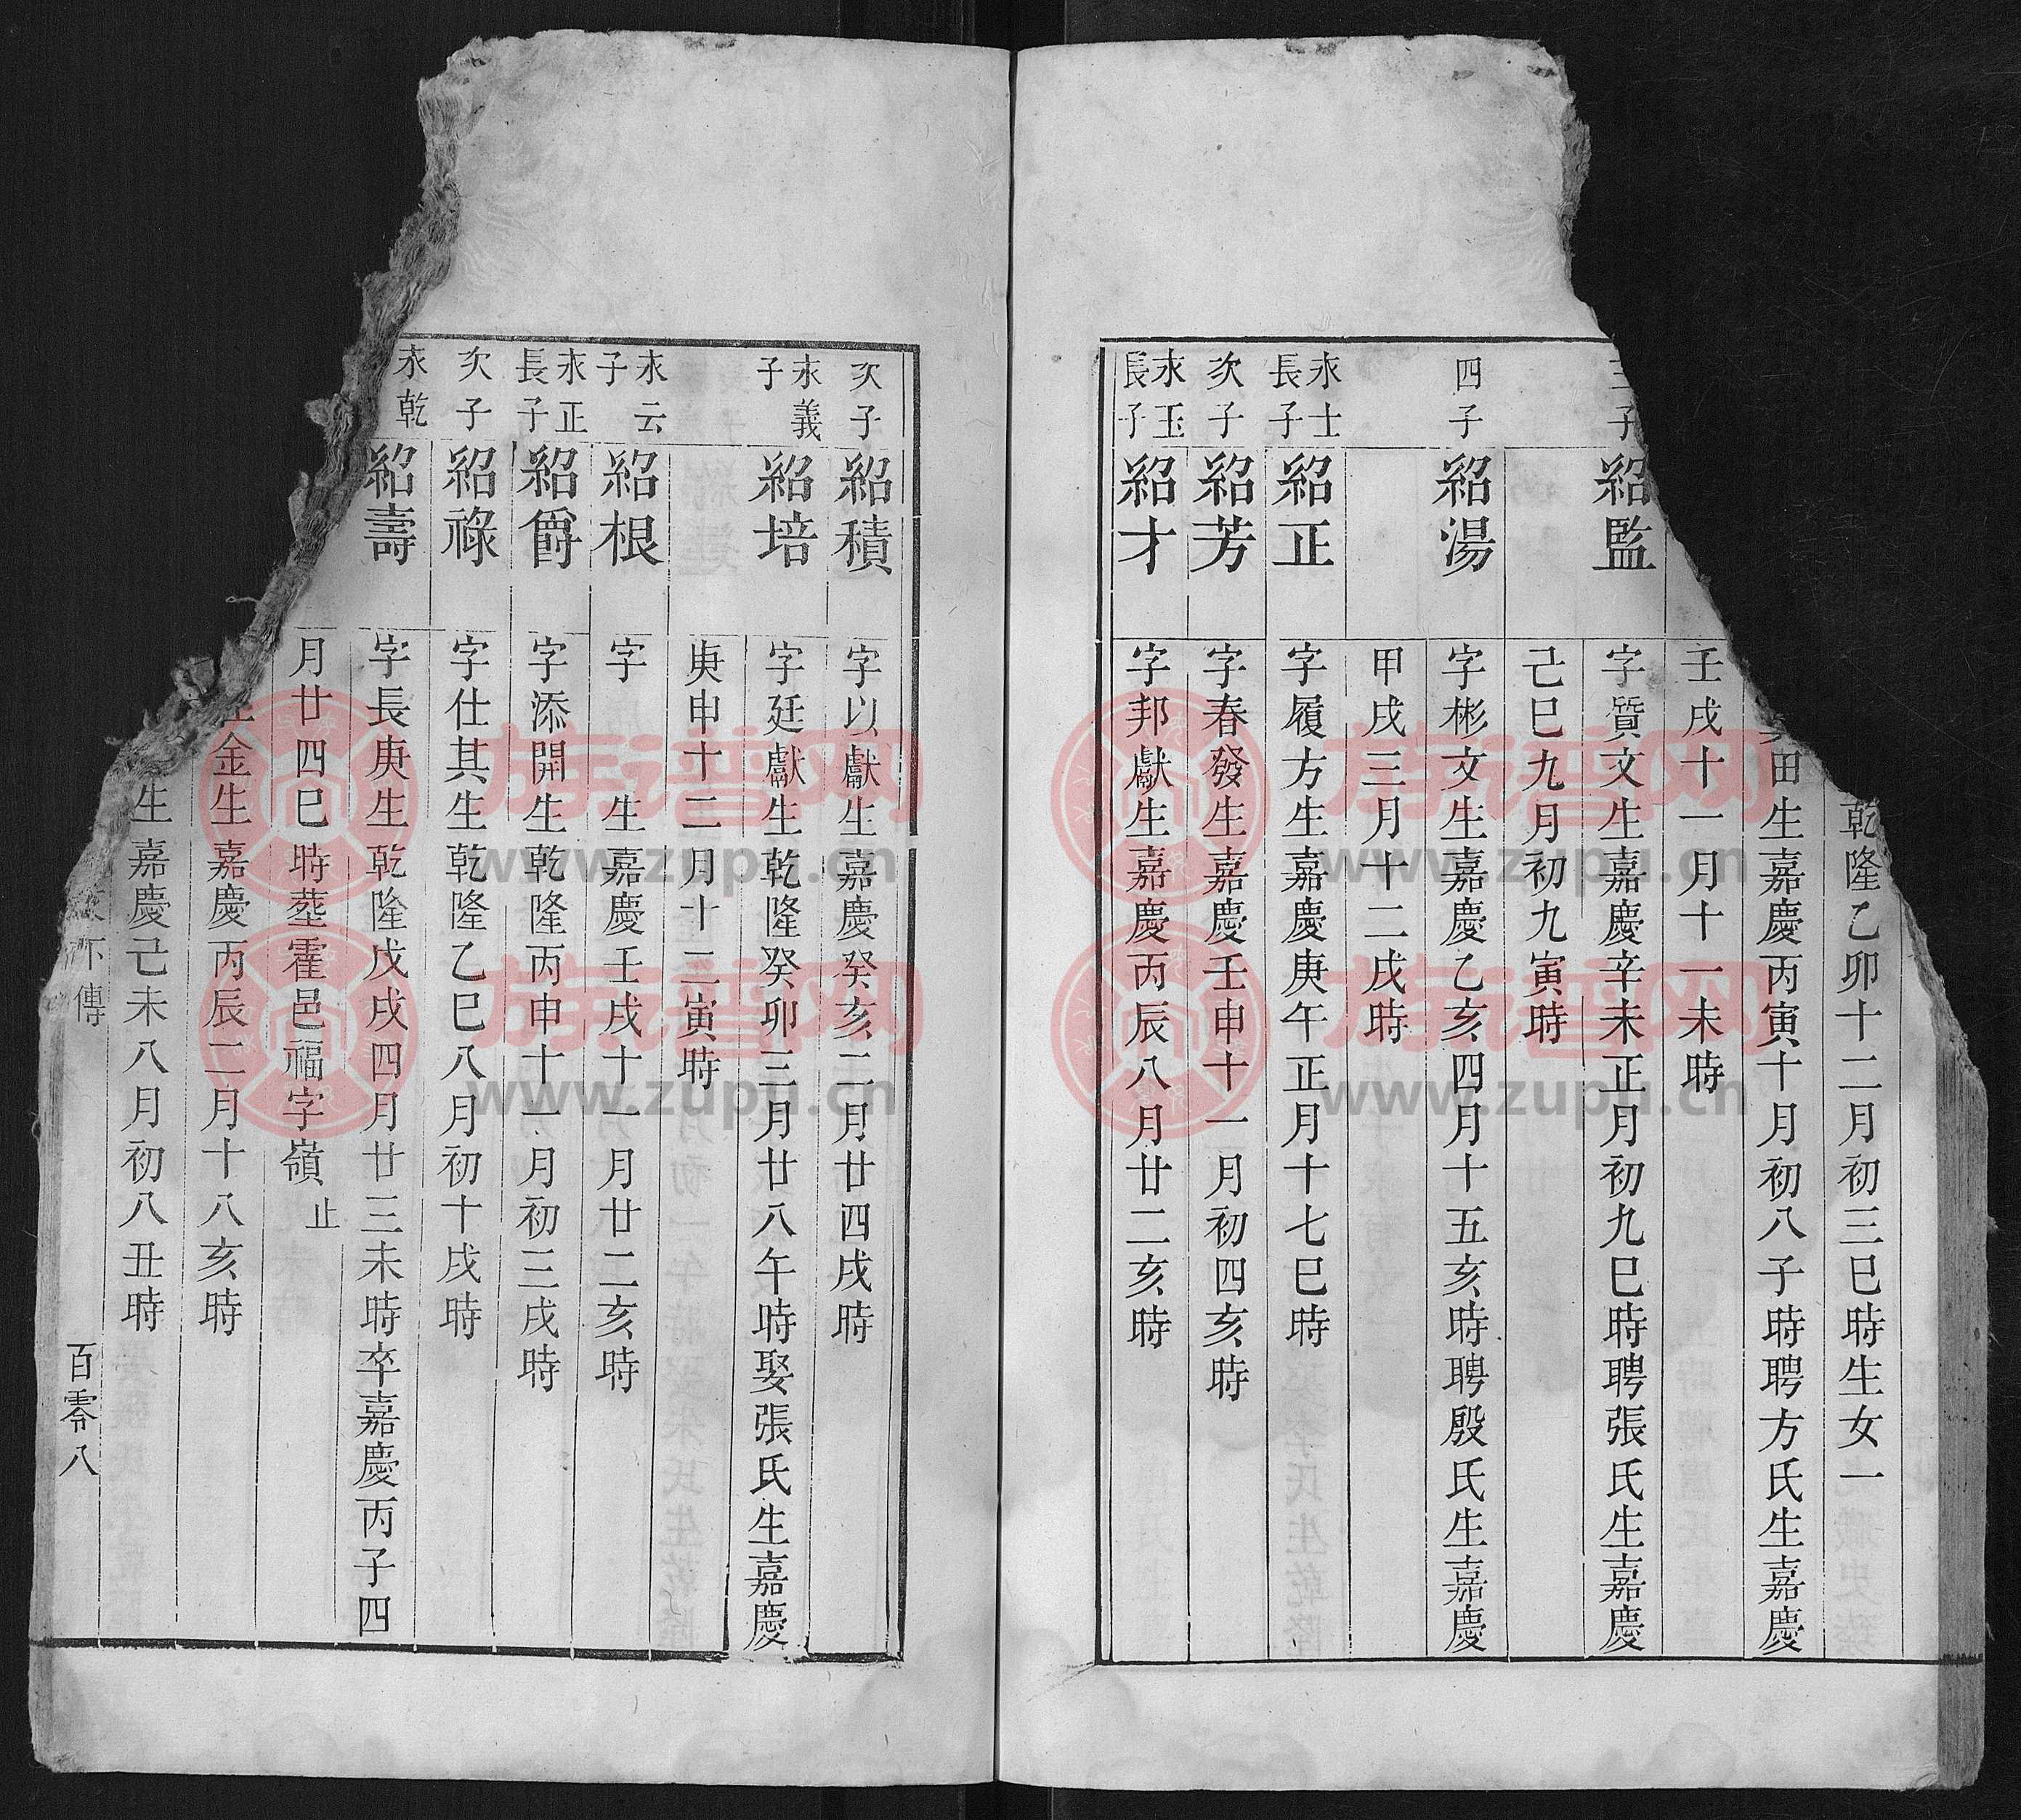 乾隆乙卯十二月初三巳時生女一
田生嘉慶丙寅十月初八子時聘方氏生嘉慶
壬戌十一月十一未時
三子 紹監 字質文生嘉慶辛未正月初九巳時聘張氏生嘉慶
己巳九月初九寅時
四子 紹湯 字彬文生嘉慶乙亥四月十五亥時聘殷氏生嘉慶
甲戌三月十二戌時
永士長子 紹正 字履方生嘉慶庚午正月十七巳時
次子 紹芳 字春發生嘉慶壬申十一月初四亥時
永玉長子 紹才 字邦獻生嘉慶丙辰八月廿二亥時
次子 紹積 字以獻生嘉慶癸亥二月廿四戌時
永義子 紹培 字廷獻生乾隆癸卯三月廿八午時娶張氏生嘉慶
庚申十二月十二寅時
永云子 紹根 字 生嘉慶壬戌十一月廿二亥時
永正長子 紹爵 字添開生乾隆丙申十一月初三戌時
次子 紹祿 字仕其生乾隆乙巳八月初十戌時
永乾 紹壽 字長庚生乾隆戊戌四月廿三未時卒嘉慶丙子四
月廿四巳時塟霍邑福字嶺 止
金生嘉慶丙辰二月十八亥時
生嘉慶己未八月初八丑時
下傳 百零八
族谱网
www.zupu.cn
族谱网
www.zupu.cn
族谱网
www.zupu.cn
族谱网
www.zupu.cn